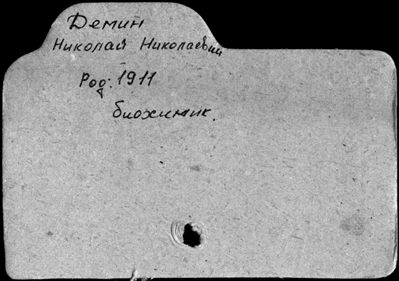 Демин
Николай Николаевич
Род. 1911
биохимик.